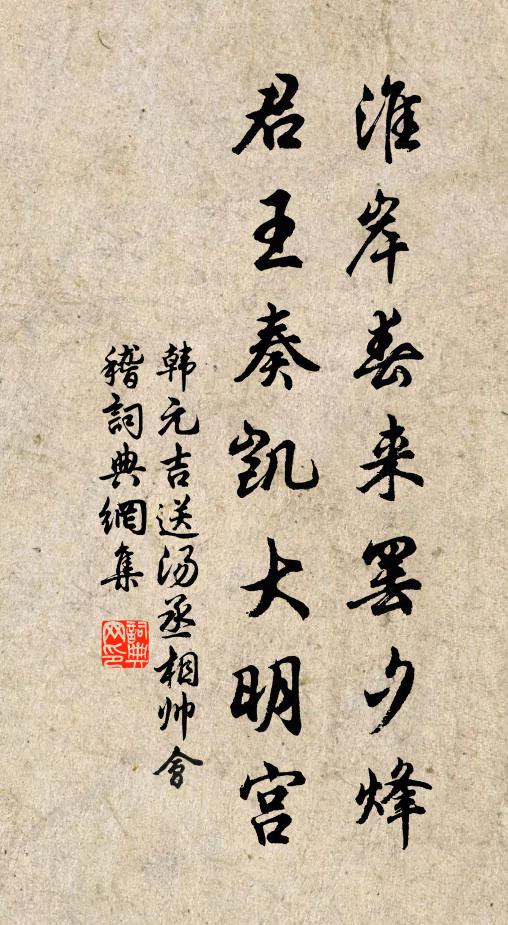 淮岸春来罢夕烽
君王奏凯大明宫
韩元吉送汤丞相帅會
稽詞典網集
詞典網印